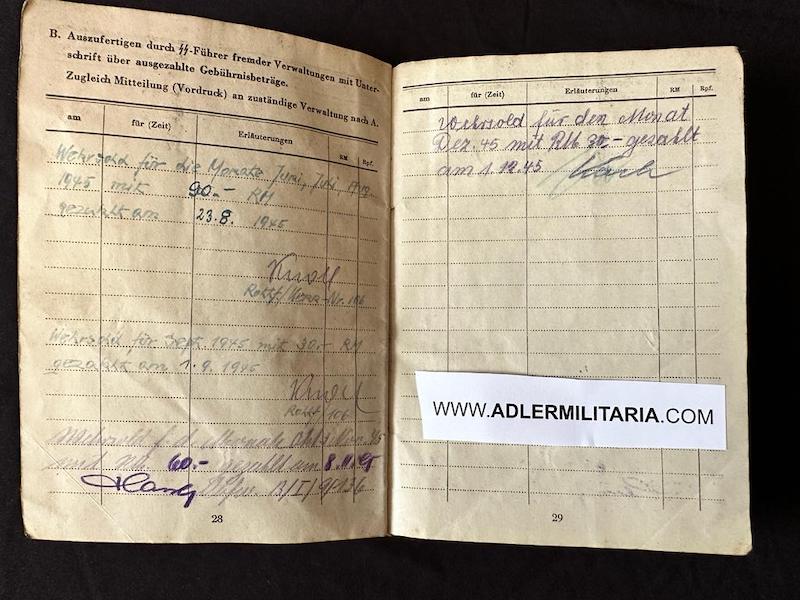 B. Auszufertigen durch ᛋᛋ-Führer fremder Verwaltungen mit Unter-
schrift über ausgezahlte Gebührnisbeträge.
Zugleich Mitteilung (Vordruck) an zuständige Verwaltung nach A.
am für (Zeit) Erläuterungen RM Rpf.
Wehrsold für die Monate Juni, Juli, Aug.
1945 mit 90.- RM
gezahlt am 23.8. 1945
Knoll
Wehrsold für Sept. 1945 mit 30.- RM
gezahlt am 1.9. 1945
Knoll
Wehrsold f. d. Monate Okt. Nov. 45
mit 60.- gezahlt am 8.11.45
28
am für (Zeit) Erläuterungen RM Rpf.
Wehrsold für den Monat
Dez. 45 mit RM 30.- gezahlt
am 1.12.45
WWW.ADLERMILITARIA.COM
29